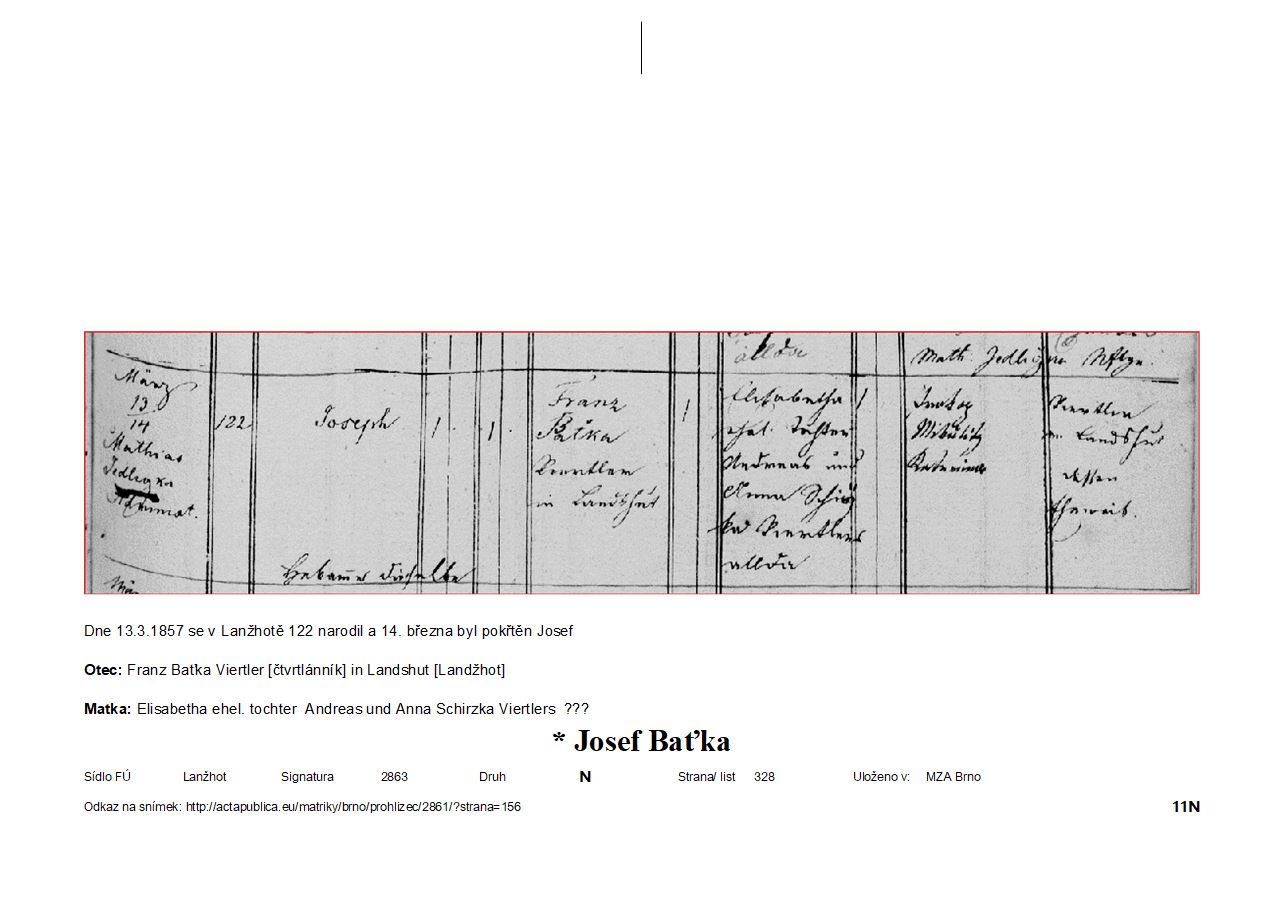 allda
Math. Jedligka
März
13
14
Mathias
Jedligka
122
Joseph
1
1
Franz
Baťka
Viertler
in Landshut
1
Elisabetha
ehel. Tochter
Andreas und
Anna Schirz
ka Viertlers
allda
1
Mikulitz
Katarina
Viertler
in Landshut
dessen
Eheweib.
Hebamme dieselbe
Dne 13.3.1857 se v Lanžhotě 122 narodil a 14. března byl pokřtěn Josef
Otec: Franz Baťka Viertler [čtvrtlánník] in Landshut [Landžhot]
Matka: Elisabetha ehel. tochter Andreas und Anna Schirzka Viertlers ???
* Josef Baťka
Sídlo FÚ Lanžhot Signatura 2863 Druh N Strana/ list 328 Uloženo v: MZA Brno
Odkaz na snímek: http://actapublica.eu/matriky/brno/prohlizec/2861/?strana=156 11N